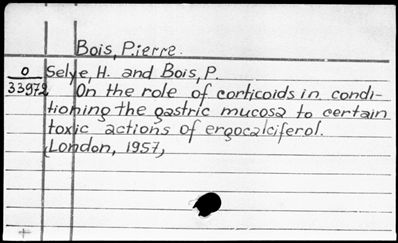 Bois, Pierre.
0 Selye, H. and Bois, P.
33972 On the role of corticoids in condi-
tioning the gastric mucosa to certain
toxic actions of ergocalciferol.
(London, 1957,